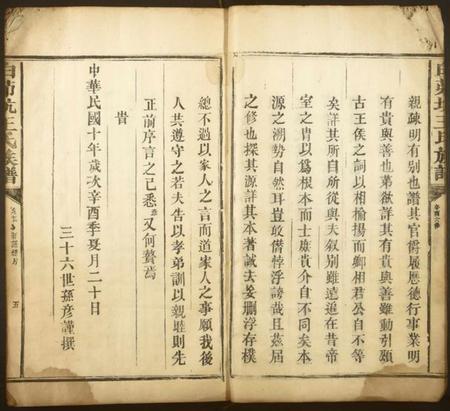 親疎明有別也譜其官爵履歷德行事業明
有貴與善也弟欲詳其有貴與善雖動引顯
古王侯之詞以相揄揚而鄉相君公自不等
矣詳其所自所從與夫叙別雖遠追在昔帝
室之胄以爲根本而士庶貴介自不同矣本
源之溯勢自然耳豈敢僭悖浮誇哉且茲屆
之修也探其源詳其本著誠夫妄刪浮存樸
總不過以家人之言而道家人之事願我後
人共遵守之若夫告以孝弟訓以親睦則先
正前序言之已悉又何贅焉
旹
中華民國十年歲次辛酉季夏月二十日
三十六世孫彦謹撰
白茆坑王氏族譜
五